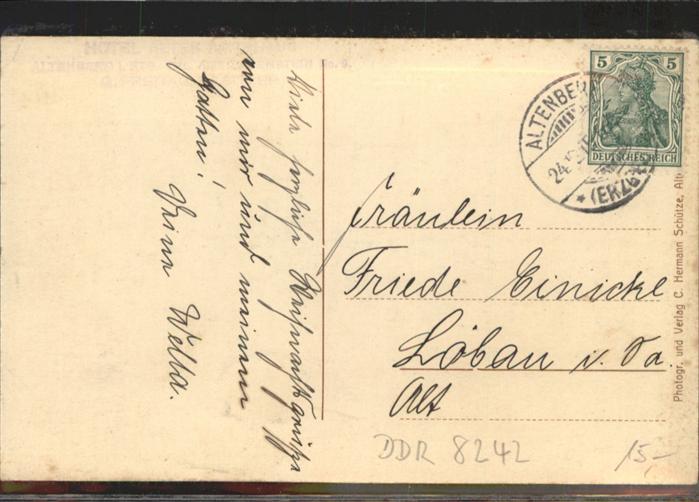 HOTEL ALTES AMTSHAUS
Viele herzliche Weihnachtsgrüße
von mir und meinem
Gatten!
Deine Wella.
5 5
DEUTSCHES REICH
ALTENBERG
24.12
* (ERZG
Fräulein
Friede Einicke
Löbau i. Sa.
Alt
Photogr. und Verlag C. Hermann Schütze, Alt
DDR 8242
15,-